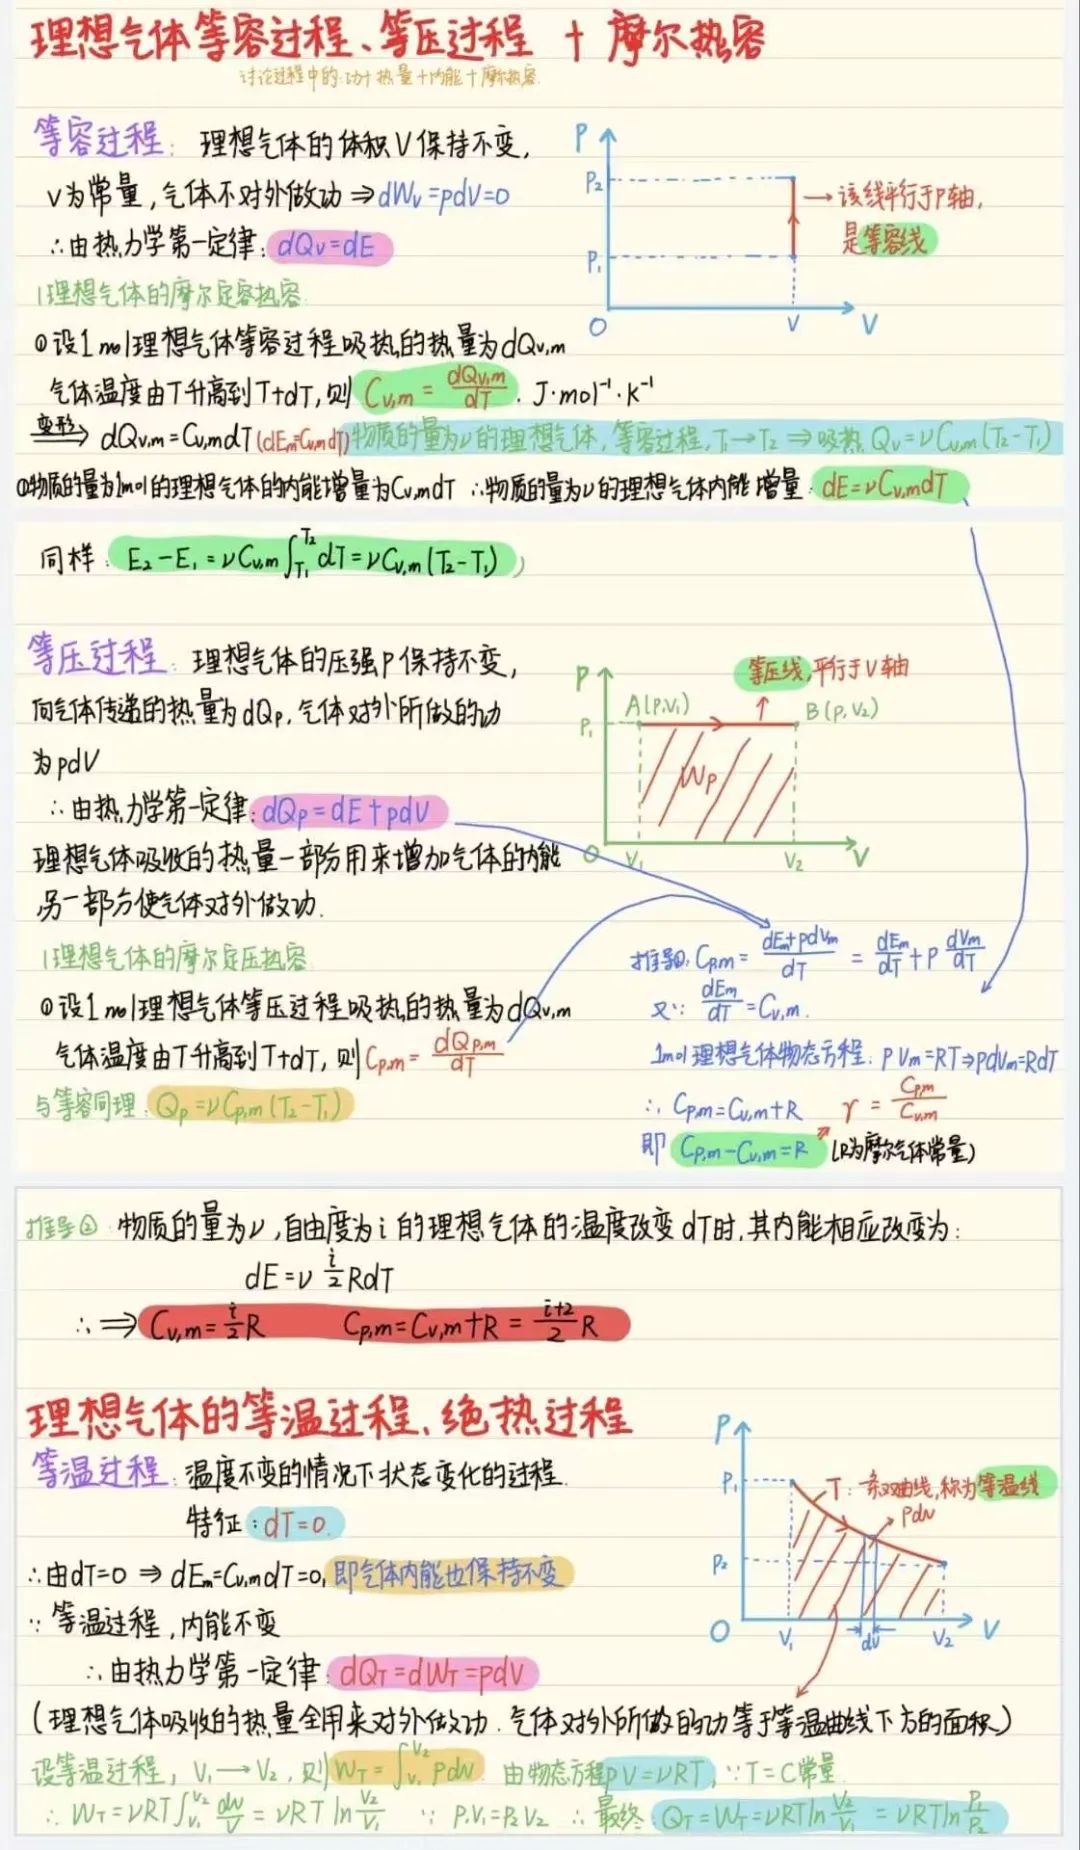 理想气体等容过程、等压过程 + 摩尔热容
讨论过程中的:功+热量+内能+摩尔热容.
等容过程: 理想气体的体积V保持不变,
V为常量,气体不对外做功 ⇒ dWv=pdV=0
∴由热力学第一定律: dQv=dE
P
P₂
P₁
O
V
V
→该线平行于P轴,
是等容线
1理想气体的摩尔定容热容
①设1mol理想气体等容过程吸热的热量为dQv,m
气体温度由T升高到T+dT,则 Cv,m = dQv,m/dT . J·mol⁻¹·K⁻¹
变形⇒ dQv,m=Cv,mdT (dEm=Cv,mdT) 物质的量为ν的理想气体,等容过程,T₁→T₂ ⇒吸热 Qv=νCv,m(T₂-T₁)
①物质的量为1mol的理想气体的内能增量为Cv,mdT ∴物质的量为ν的理想气体内能增量: dE=νCv,mdT
同样: E₂-E₁=νCv,m∫T₁T₂ dT=νCv,m(T₂-T₁)
等压过程: 理想气体的压强P保持不变,
向气体传递的热量为dQp,气体对外所做的功
为pdV
∴由热力学第一定律: dQp=dE+pdV
理想气体吸收的热量一部分用来增加气体的内能
另一部分使气体对外做功.
P
P₁
A(P,V₁)
B(P,V₂)
Wp
O
V₁
V₂
V
等压线,平行于V轴
1理想气体的摩尔定压热容
①设1mol理想气体等压过程吸热的热量为dQv,m
气体温度由T升高到T+dT,则 Cp,m= dQp,m/dT
与等容同理: Qp=νCp,m(T₂-T₁)
推导①: Cp,m= dEm+pdVm/dT = dEm/dT+P dVm/dT
又∵ dEm/dT=Cv,m.
1mol理想气体物态方程: PVm=RT⇒PdVm=RdT
∴ Cp,m=Cv,m+R γ= Cp,m/Cv,m
即 Cp,m-Cv,m=R (R为摩尔气体常量)
推导② 物质的量为ν,自由度为i的理想气体的温度改变dT时,其内能相应改变为:
dE=ν i/2 RdT
∴ ⇒ Cv,m= i/2 R Cp,m=Cv,m+R = i+2/2 R
理想气体的等温过程、绝热过程
等温过程: 温度不变的情况下状态变化的过程.
特征: dT=0.
∴由dT=0 ⇒ dEm=Cv,mdT=0,即气体内能也保持不变
∵ 等温过程,内能不变
∴由热力学第一定律: dQT=dWT=pdV
P
P₁
P₂
O
V₁
dV
V₂
V
T:一条双曲线,称为等温线
pdV
(理想气体吸收的热量全用来对外做功.气体对外所做的功等于等温曲线下方的面积)
设等温过程, V₁→V₂,则WT=∫V₁V₂ PdV 由物态方程PV=νRT,∵T=C常量
∴ WT=νRT∫V₁V₂ dV/V = νRT ln V₂/V₁ ∵ P₁V₁=P₂V₂ ∴ 最终: QT=WT=νRTln V₂/V₁ = νRTln P₁/P₂